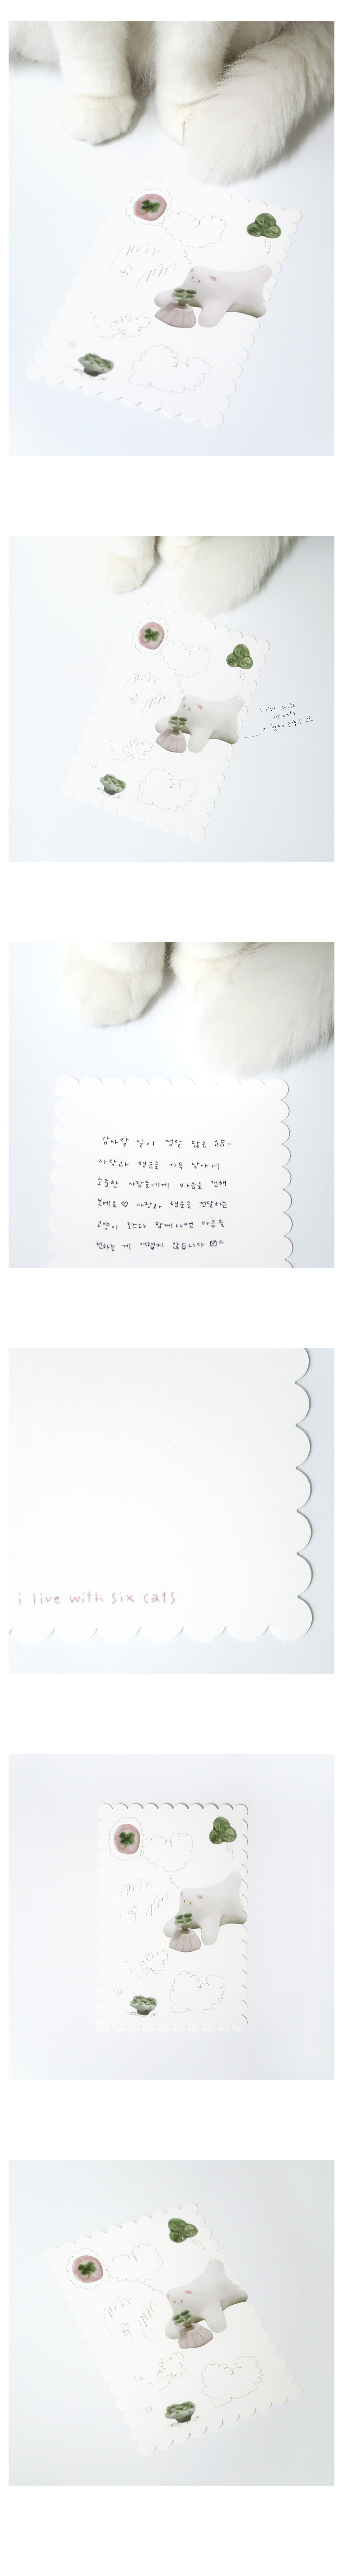 i live with
six cats
감사할 일이 정말 많은 요즘~
사랑과 행운을 가득 담아서
소중한 사람들에게 마음을 전해
보세요♡ 사랑과 행운을 전달하는
고양이 포스와 함께라면 마음을
전하는 게 어렵지 않습니다
i live with six cats